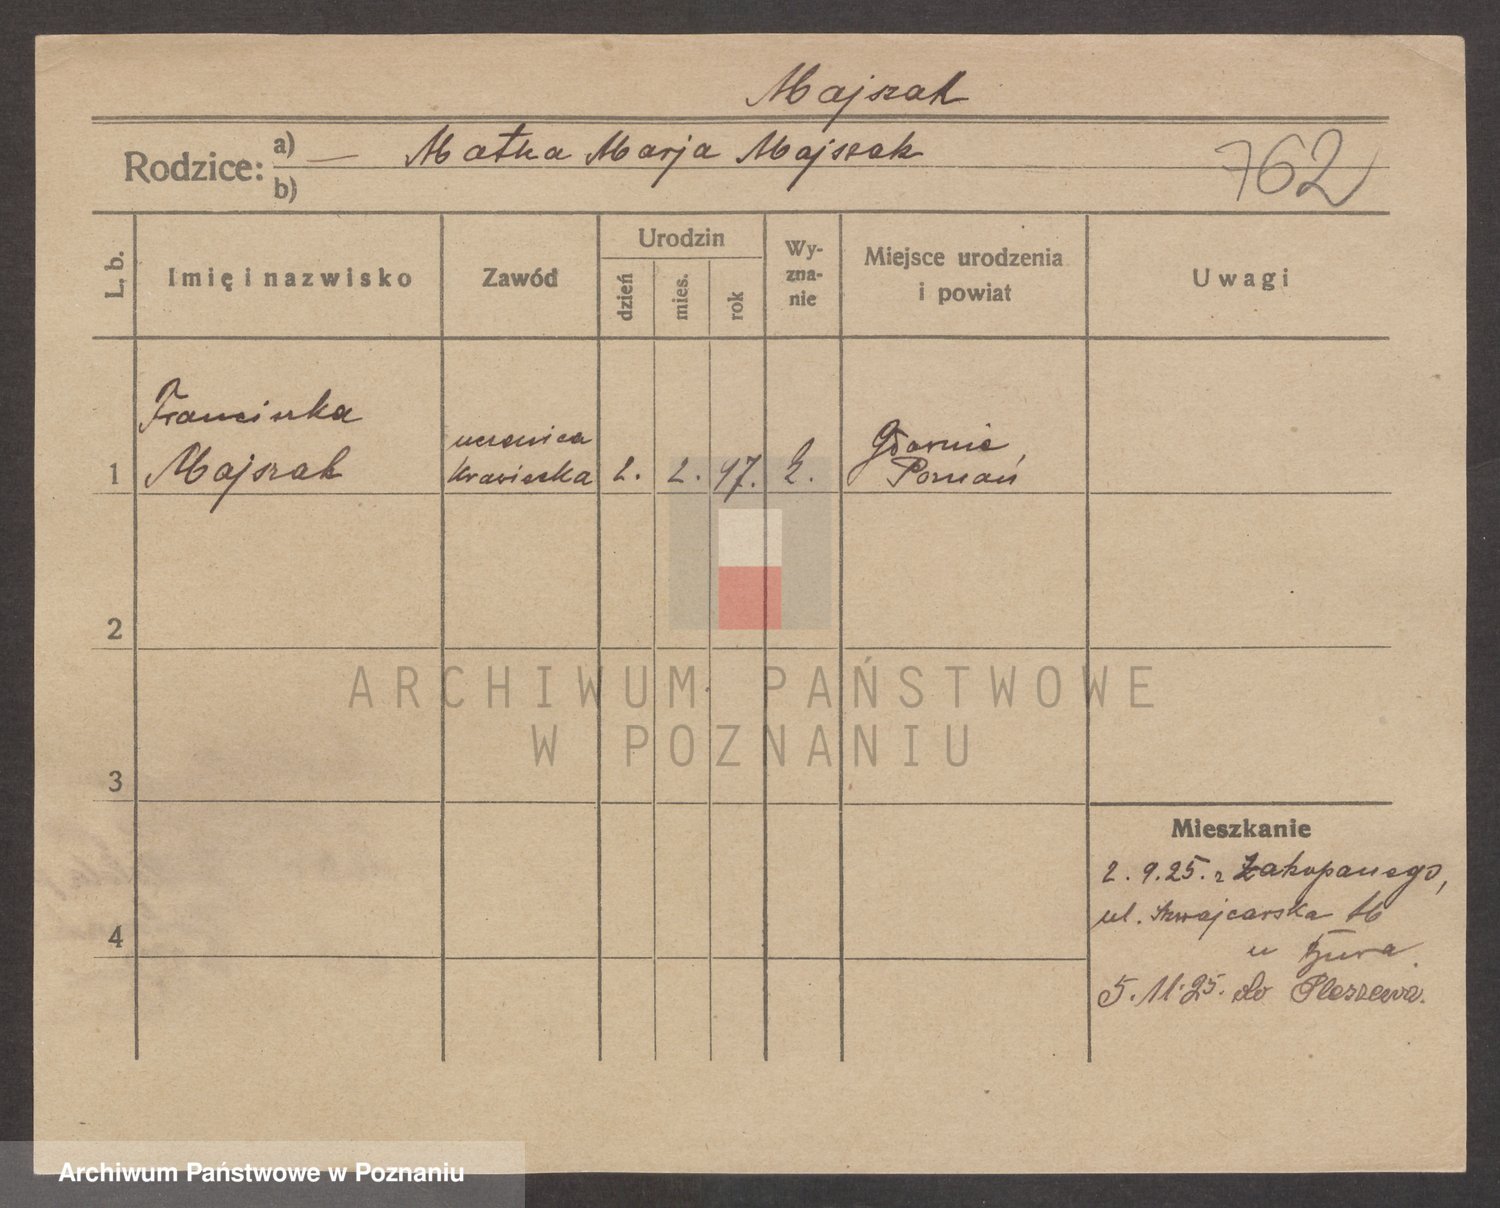 Majszak
Rodzice: a) — Matka Marja Majszak
b)
762
L. b.
Imię i nazwisko
Zawód
Urodzin
dzień
mies.
rok
Wy-
zna-
nie
Miejsce urodzenia
i powiat
Uwagi
Franciszka
1 Majszak
uczenica
krawiecka
2. 2. 97.
Poznań
2
3
4
Mieszkanie
2. 9. 25. z Zakopanego,
ul. Szwajcarska 16
u
5. 11. 25. do Pleszewa.
ARCHIWUM PAŃSTWOWE
W POZNANIU
Archiwum Państwowe w Poznaniu